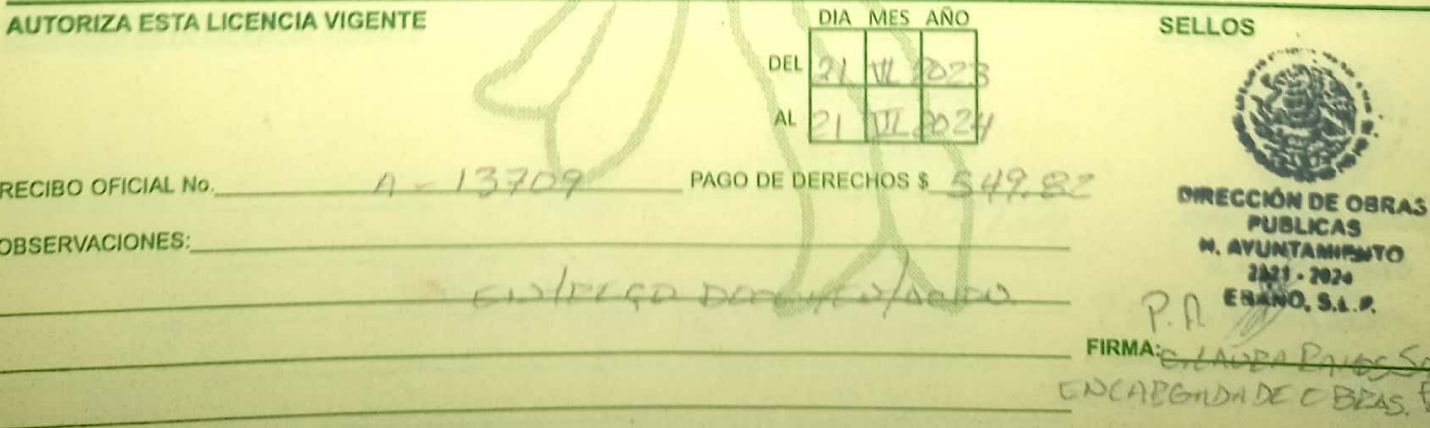 AUTORIZA ESTA LICENCIA VIGENTE
DIA MES AÑO
DEL 21 VI 2023
AL 21 VI 2024
SELLOS
RECIBO OFICIAL No. A - 13709 PAGO DE DERECHOS $ 549.82
OBSERVACIONES:
ENTREGO DOCUMENTACION
DIRECCIÓN DE OBRAS
PUBLICAS
H. AYUNTAMIENTO
2021 - 2024
EBANO, S.L.P.
P.A
FIRMA: C. LAURA
ENCARGADA DE OBRAS.